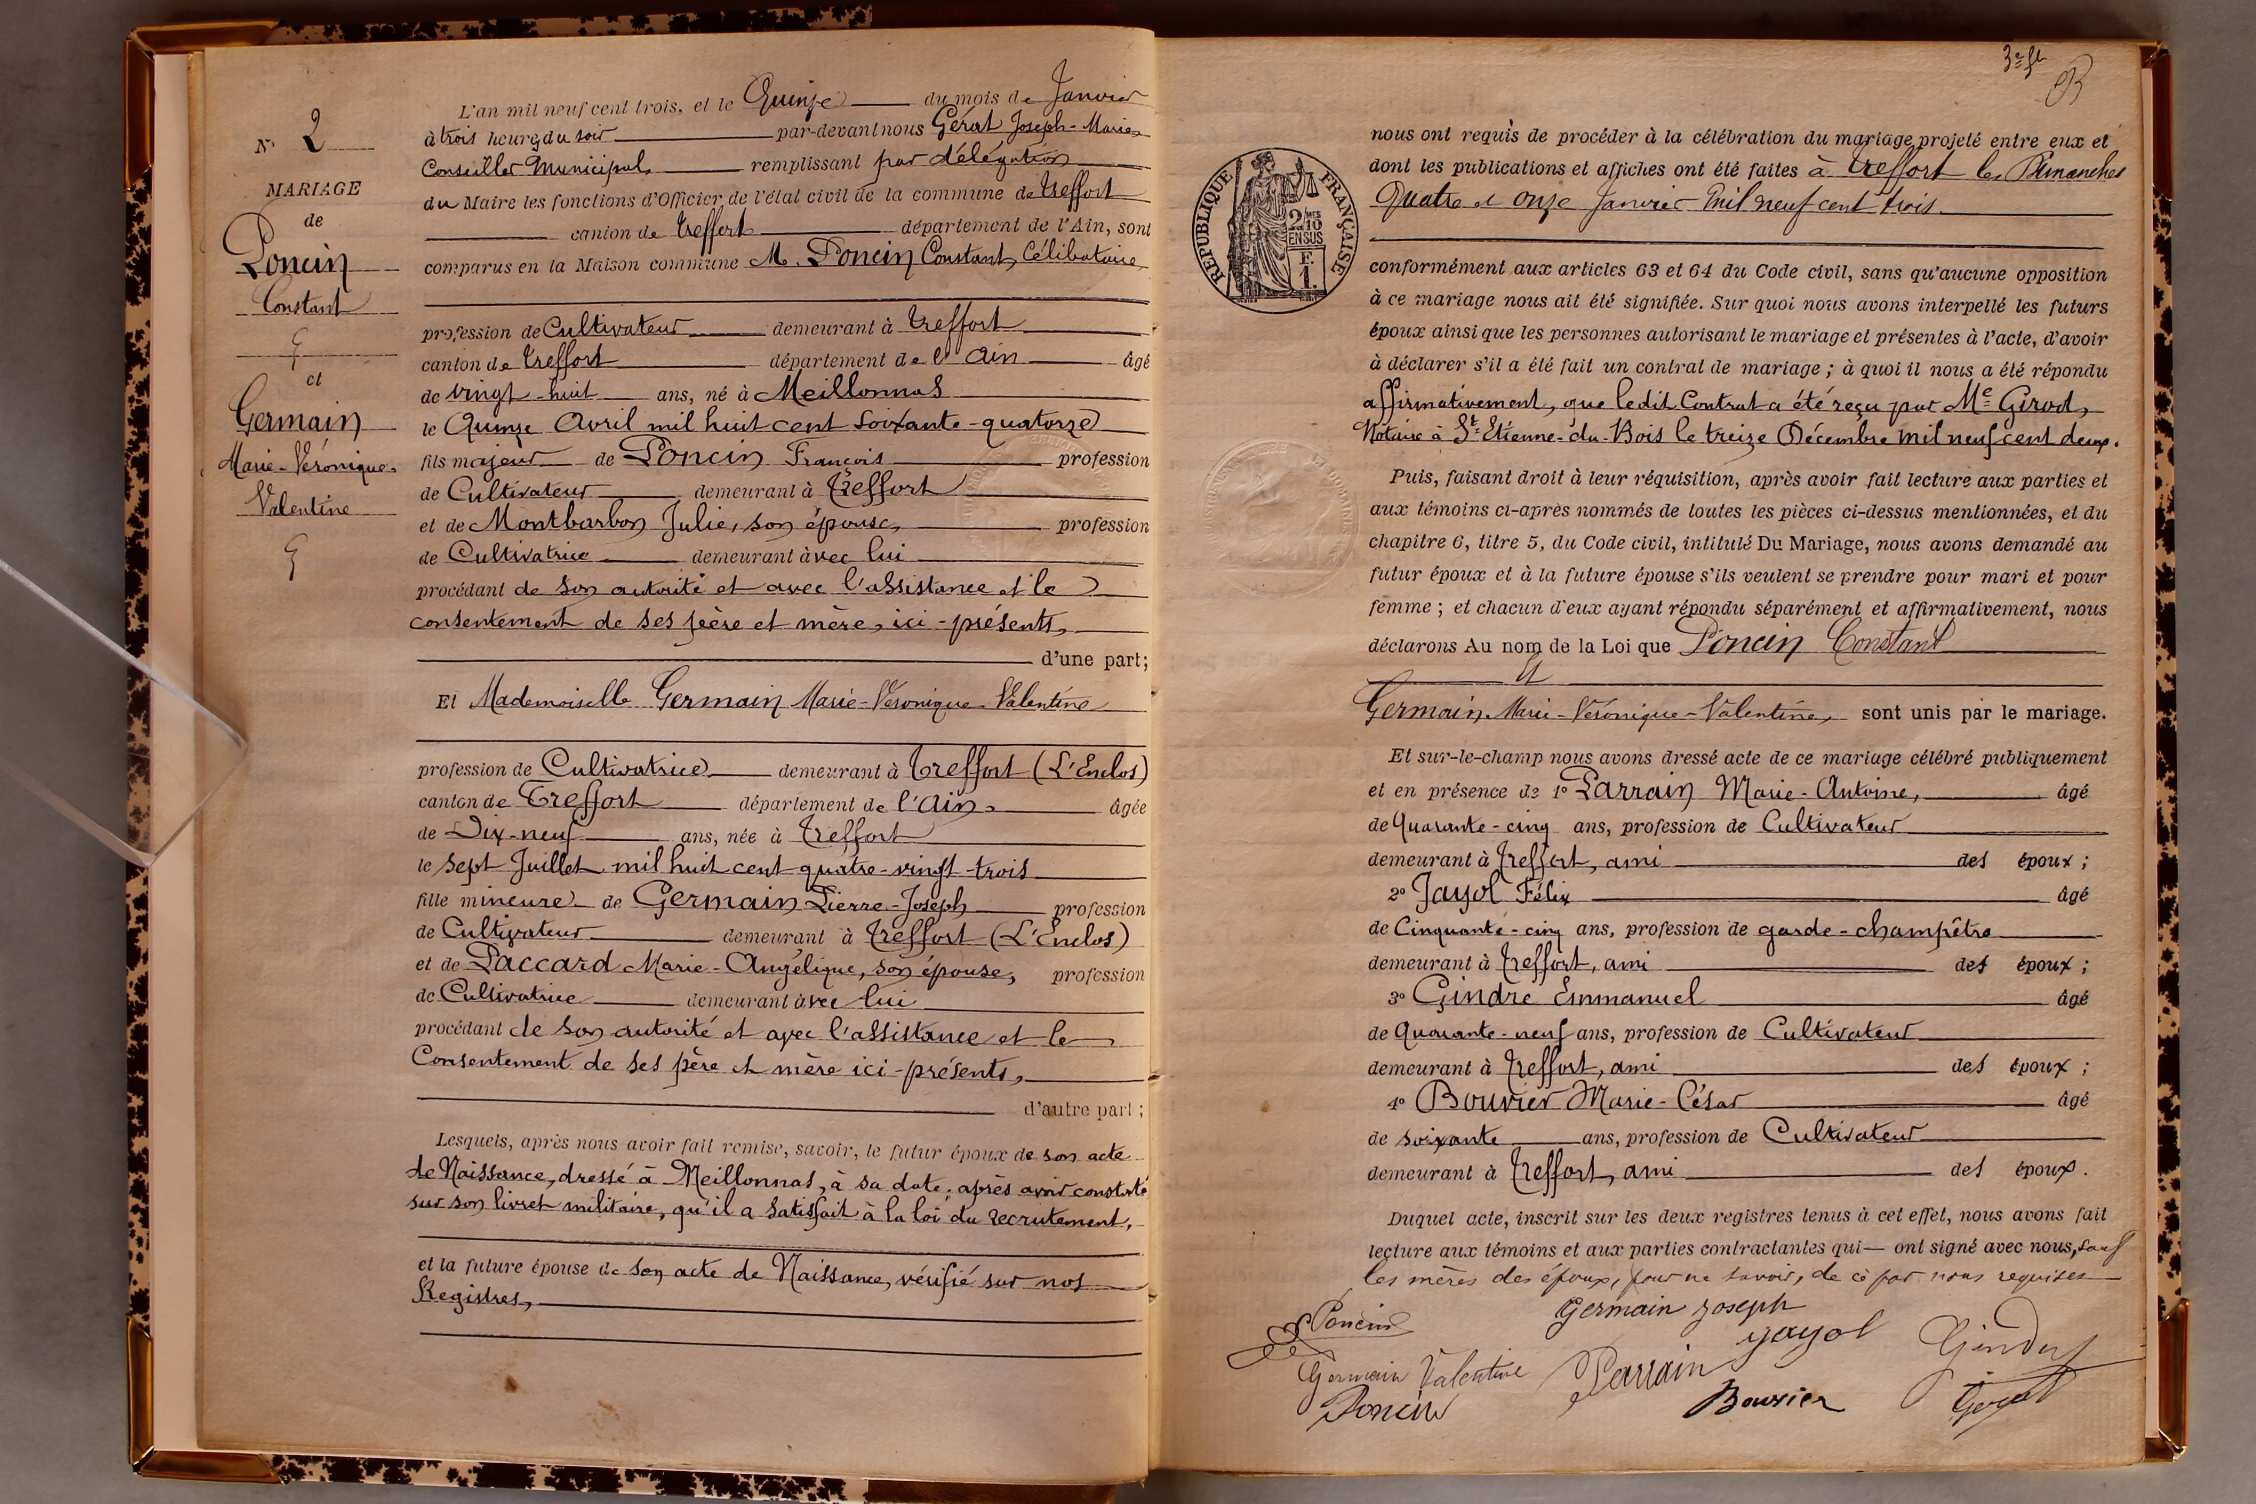 N° 2
MARIAGE
de
Poncin
Constant
et
Germain
Marie-Véronique-
Valentine
L'an mil neuf cent trois, et le Quinze du mois de Janvier
à trois heures du soir par-devant nous Gérat Joseph-Marie
Conseiller Municipal, remplissant par délégation
du Maire les fonctions d'Officier de l'état civil de la commune de Treffort
canton de Treffort département de l'Ain, sont
comparus en la Maison commune M. Poncin Constant, Célibataire
profession de Cultivateur demeurant à Treffort
canton de Treffort département de l'Ain âgé
de vingt-huit ans, né à Meillonnas
le Quinze Avril mil huit cent soixante-quatorze
fils majeur de Poncin François profession
de Cultivateur demeurant à Treffort
et de Montbarbon Julie, son épouse, profession
de Cultivatrice demeurant avec lui
procédant de son autorité et avec l'assistance et le
consentement de ses père et mère, ici-présents,
d'une part;
Et Mademoiselle Germain Marie-Véronique-Valentine
profession de Cultivatrice demeurant à Treffort (L'Enclos)
canton de Treffort département de l'Ain, âgée
de Dix-neuf ans, née à Treffort
le sept Juillet mil huit cent quatre-vingt-trois
fille mineure de Germain Pierre-Joseph profession
de Cultivateur demeurant à Treffort (L'Enclos)
et de Paccard Marie-Angélique, son épouse, profession
de Cultivatrice demeurant avec lui
procédant de son autorité et avec l'assistance et le
Consentement de ses père et mère ici-présents,
d'autre part;
Lesquels, après nous avoir fait remise, savoir, le futur époux de son acte
de Naissance, dressé à Meillonnas, à sa date; après avoir constaté
sur son livret militaire, qu'il a satisfait à la loi du recrutement,
et la future épouse de son acte de Naissance, vérifié sur nos
Registres,
3e ft
nous ont requis de procéder à la célébration du mariage projeté entre eux et
dont les publications et affiches ont été faites à Treffort les Dimanches
Quatre et onze Janvier mil neuf cent trois.
RÉPUBLIQUE FRANÇAISE
2/10
EN SUS
F.
1.
conformément aux articles 63 et 64 du Code civil, sans qu'aucune opposition
à ce mariage nous ait été signifiée. Sur quoi nous avons interpellé les futurs
époux ainsi que les personnes autorisant le mariage et présentes à l'acte, d'avoir
à déclarer s'il a été fait un contrat de mariage; à quoi il nous a été répondu
affirmativement, que ledit Contrat a été reçu par Me Girod,
Notaire à St-Etienne-du-Bois le treize Décembre mil neuf cent deux.
Puis, faisant droit à leur réquisition, après avoir fait lecture aux parties et
aux témoins ci-après nommés de toutes les pièces ci-dessus mentionnées, et du
chapitre 6, titre 5, du Code civil, intitulé Du Mariage, nous avons demandé au
futur époux et à la future épouse s'ils veulent se prendre pour mari et pour
femme; et chacun d'eux ayant répondu séparément et affirmativement, nous
déclarons Au nom de la Loi que Poncin Constant
Et
Germain Marie-Véronique-Valentine, sont unis par le mariage.
Et sur-le-champ nous avons dressé acte de ce mariage célébré publiquement
et en présence de 1° Parrain Marie-Antoine, âgé
de Quarante-cinq ans, profession de Cultivateur
demeurant à Treffort, ami des époux;
2° Jayol Félix âgé
de Cinquante-cinq ans, profession de garde-champêtre
demeurant à Treffort, ami des époux;
3° Gindre Emmanuel âgé
de Quarante-neuf ans, profession de Cultivateur
demeurant à Treffort, ami des époux;
4° Bouvier Marie-César âgé
de soixante ans, profession de Cultivateur
demeurant à Treffort, ami des époux.
Duquel acte, inscrit sur les deux registres tenus à cet effet, nous avons fait
lecture aux témoins et aux parties contractantes qui ont signé avec nous, sauf
les mères des époux, pour ne savoir, de ce par nous requises
Poncin Germain Joseph
Jayol Gindre
Germain Valentine Parrain
Poncin Bouvier Gérat